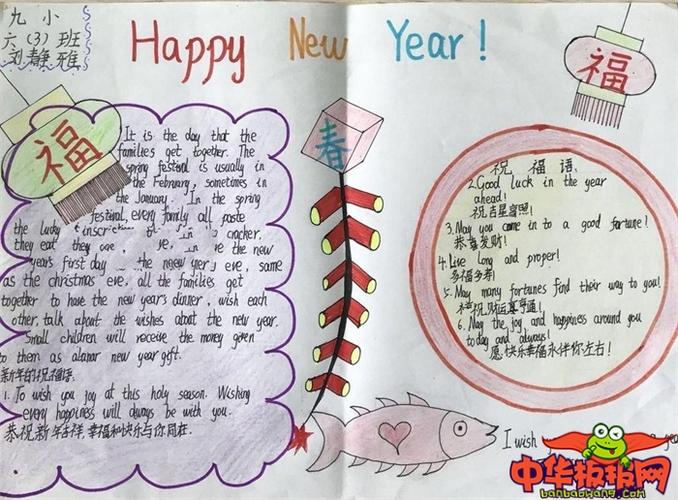 九 小
六 (3) 班
刘静雅
Happy New Year!
福
福
春
It is the day that the
families get together. The
spring festival is usually in
the February, sometimes in
the January. In the spring
festival, every family all paste
the lucky inscrip cracker,
they eat they are ve the new
year's first day the new year eve, same
as the christmas eve, all the families get
together to have the new year's dinner, wish each
other, talk about the wishes about the new year.
Small children will receive the money given
to them as alanar new year geft.
新年的祝福语:
1. To wish you joy at this holy season. Wishing
every happiness will always be with you.
恭祝新年吉祥,幸福和快乐与你同在.
祝 福 语:
2. Good luck in the year
ahead!
祝吉星高照!
3. May you come in to a good fortune!
恭喜发财!
4. Live long and proper!
多福多寿!
5. May many fortunes find their way to you!
祝财运亨通!
6. May the joy and happiness around you
today and always!
愿快乐幸福永伴你左右!
I wish
中华板报网
banbaowang.com